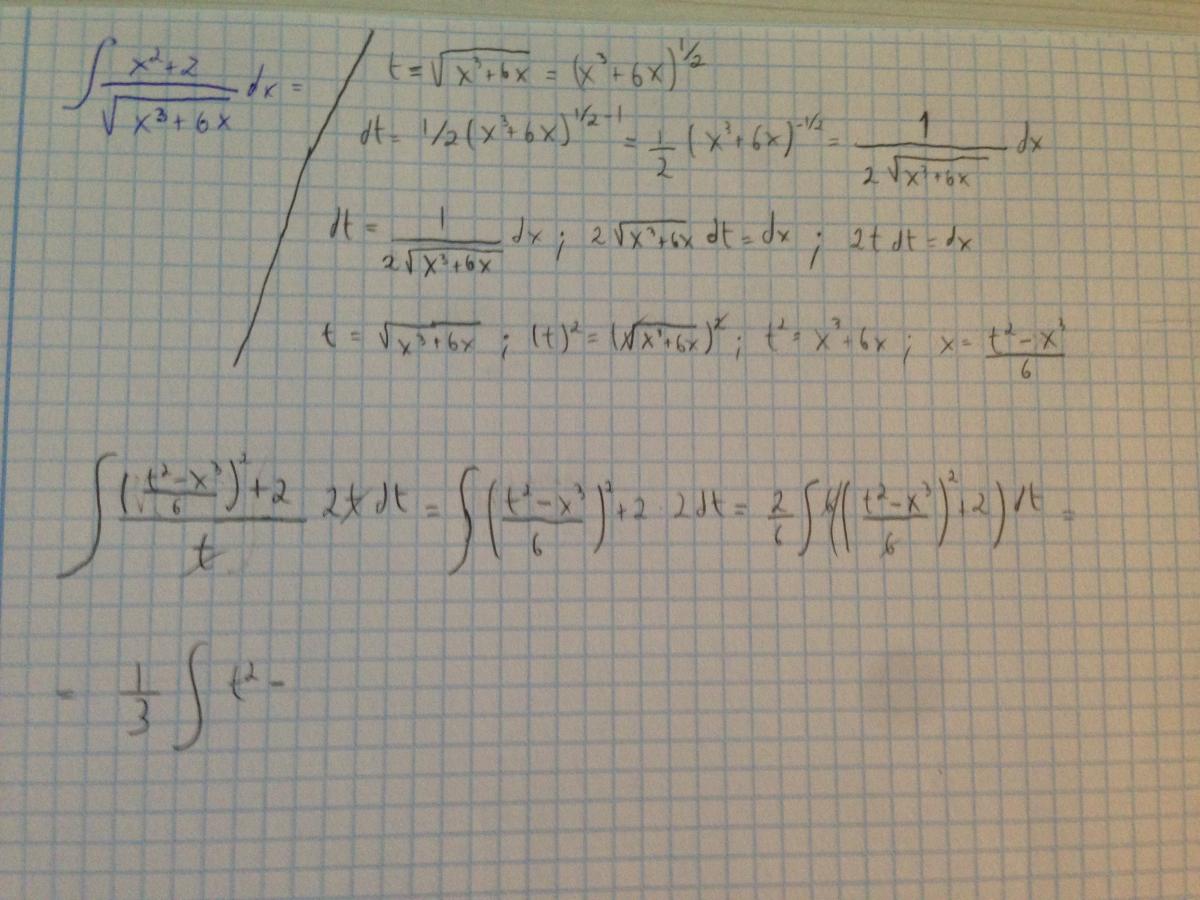 ∫ (x²+2)/√(x³+6x) dx =
t = √(x³+6x) = (x³+6x)^1/2
dt = 1/2 (x³+6x)^(1/2-1) = 1/2 (x³+6x)^(-1/2) = 1/(2√(x³+6x)) dx
dt = 1/(2√(x³+6x)) dx ; 2√(x³+6x) dt = dx ; 2t dt = dx
t = √(x³+6x) ; (t)² = (√(x³+6x))² ; t² = x³+6x ; x = (t²-x³)/6
∫ (((t²-x³)/6)²+2)/t 2t dt = ∫ ((t²-x³)/6)²+2 · 2dt = 2/6 ∫ 6(((t²-x³)/6)²+2) dt =
= 1/3 ∫ t² -